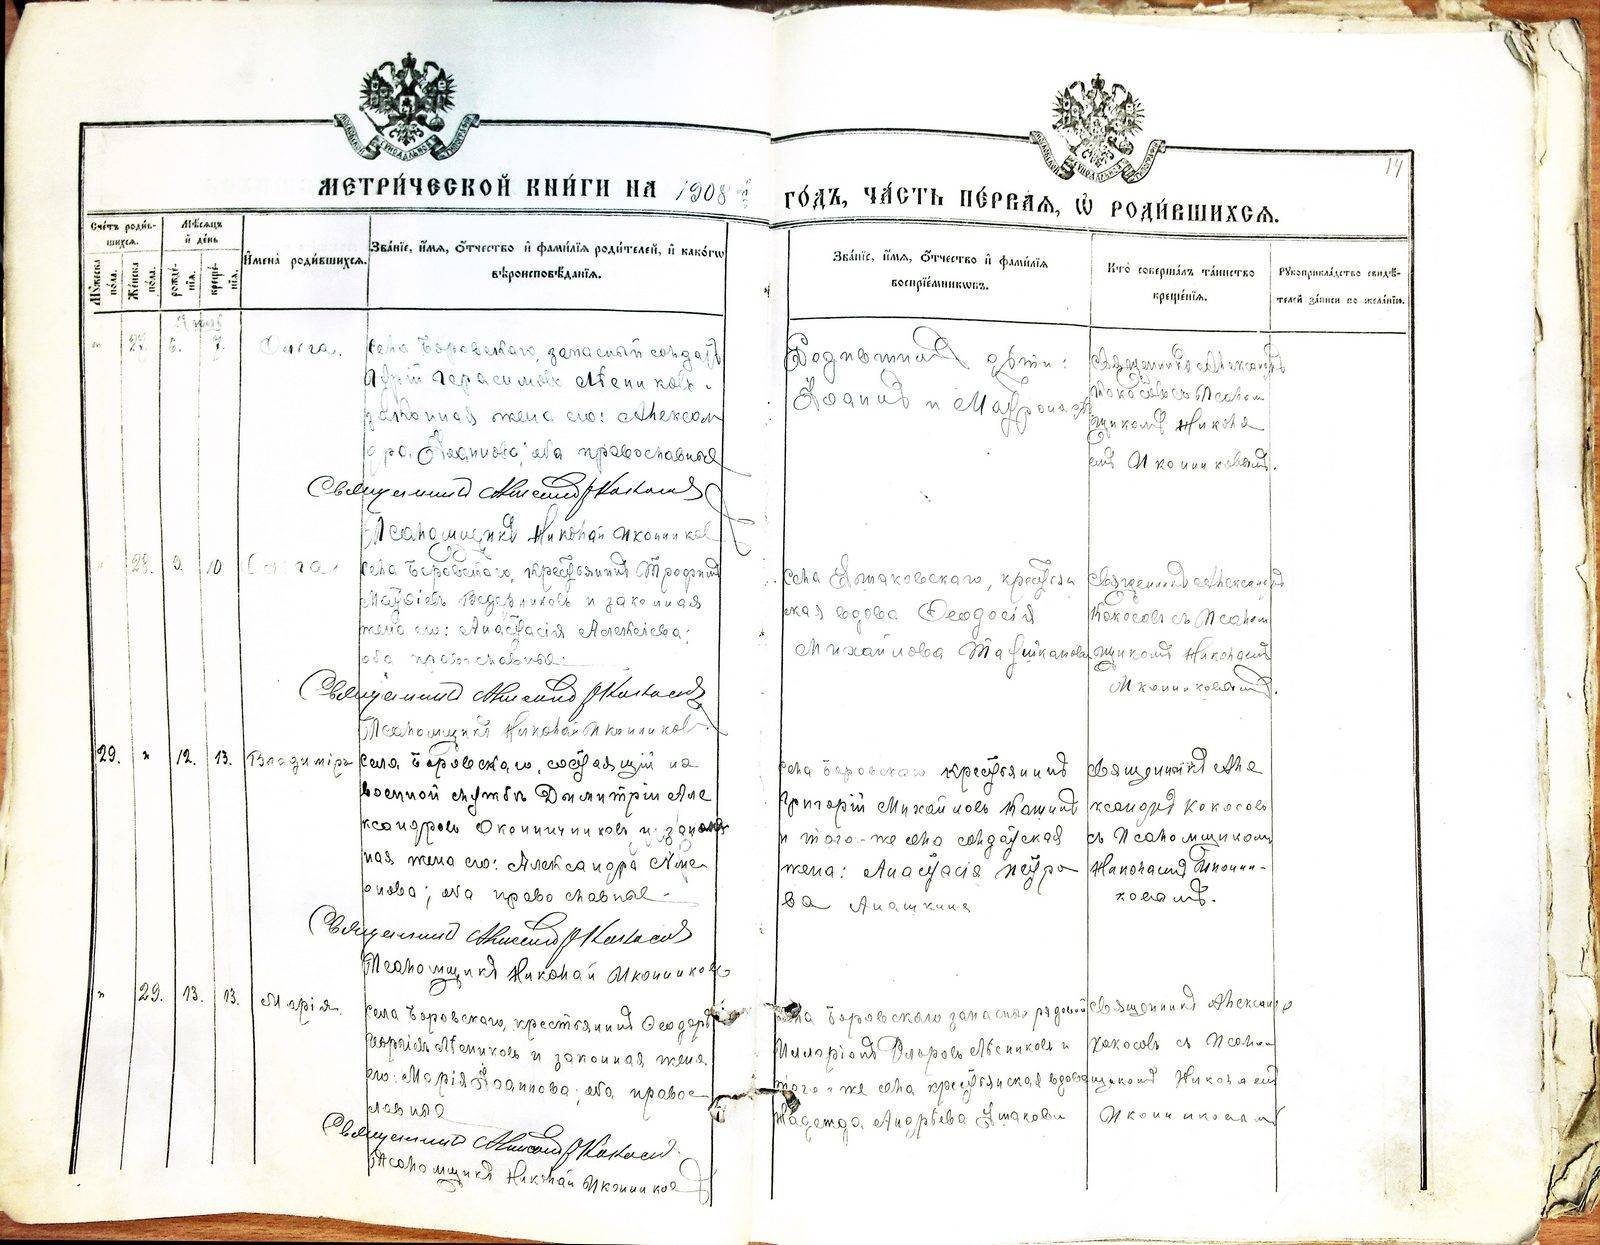 14
МЕТРИ́ЧЕСКОЙ КНИ́ГИ НА 1908 й
ГО́ДЪ, ЧА́СТЬ ПЕ́РВАЯ, Ѡ РОДИ́ВШИХСЯ.
Сче́тъ роди́вшихся.
Мѣсяцъ и҆ день
И҆мена̀ роди́вшихся.
Зва́нїе, и҆́мя, ѻ҆́тчество и҆ фами́лїя роди́телей, и҆ како́гѡ
вѣроисповѣ́данїя.
Зва́нїе, и҆́мя, ѻ҆́тчество и҆ фами́лїя
воспрїе́мникѡвъ.
Кто̀ соверша́лъ та́инство
креще́нїя.
Рꙋкоприкла́дство свидѣ́-
телей за́писи по жела́нїю.
Мꙋ́жеска по́ла.
Же́нска по́ла.
рожде́-
нїя.
креще́-
нїя.
" 27. 6. 7. Ольга.
села Боровскаго, запасный солдатъ
Герасимовъ Мѣниковъ
законная жена его: Алексан
дра Іоаннова; оба православные
Священникъ Александръ Кокосовъ
Псаломщикъ Николай Иконников
Родившия дѣти:
Іоаннъ и
Священникъ Александръ
Кокосовъ съ Псалом
щикомъ Никола
емъ Иконниковымъ.
" 28. 9. 10 Ольга
села Боровскаго, крестьянинъ Трофимъ
и законная
жена его: Анастасія Алексіева;
оба православные.
Священникъ Александръ Кокосовъ
Псаломщикъ Николай Иконников.
села крестьян
ская вдова Ѳеодосія
Михайлова
Священникъ Александръ
Кокосовъ съ Псалом
щикомъ Николаемъ
Иконниковымъ.
29. " 12. 13. Владиміръ
села Боровскаго, состоящій на
военной службѣ Димитрій Але
ксандровъ Оконничниковъ и закон
ная жена его: Александра
онова; оба православные
Священникъ Александръ Кокосовъ
Псаломщикъ Николай Иконниковъ
села Боровскаго крестьянинъ
Григорій Михайловъ
и того-же села солдатская
жена: Анастасія Петро
ва Анашкина
Священникъ Але
ксандръ Кокосовъ
съ Псаломщикомъ
Николаемъ Иконни-
ковымъ.
" 29. 13. 13. Марія
села Боровскаго, крестьянинъ Ѳеодоръ
и законная жена
его: Марія Іоаннова; оба правос
лавные
Священникъ Александръ Кокосовъ.
Псаломщикъ Николай Иконников
села Боровскаго запасный рядовой
Илларіонъ и
того-же села крестьянская вдова
Надежда Андрѣева
Священникъ Александръ
Кокосовъ съ Псалом
щикомъ Николаемъ
Иконниковымъ